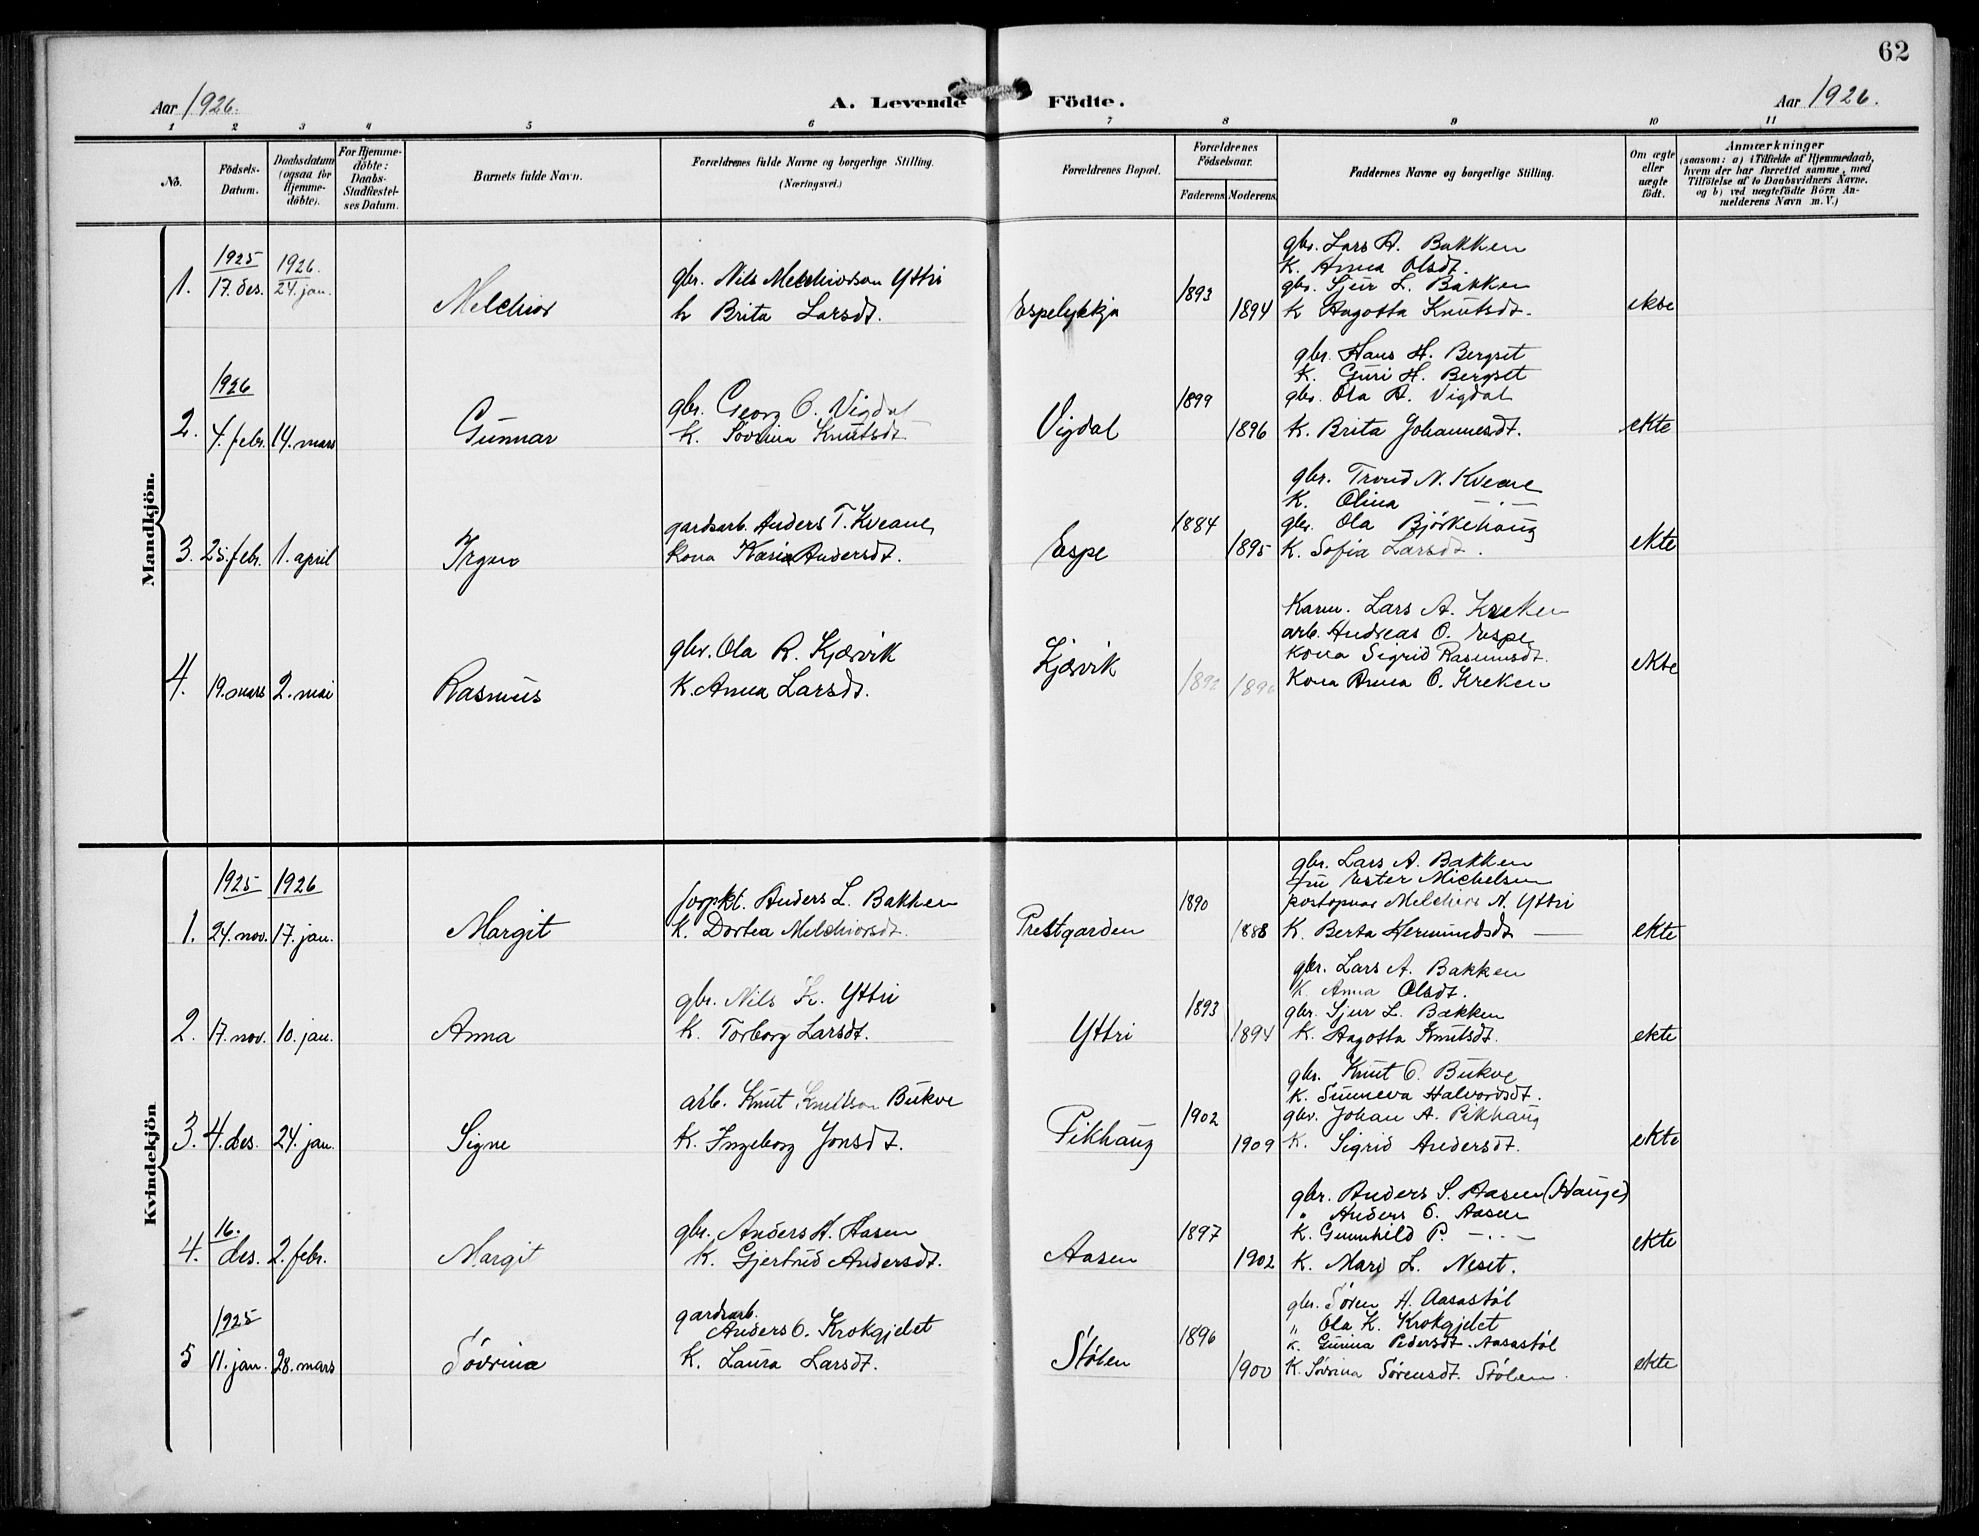 62
Aar 1926.
A. Levende Födte.
Aar 1926.
1 2 3 4 5 6 7 8 9 10 11
No.
Födsels-
Datum.
Daabsdatum
(ogsaa for
Hjemme-
döbte).
For Hjemme-
döbte:
Daabs-
Stadfestel-
ses Datum.
Barnets fulde Navn.
Forældrenes fulde Navne og borgerlige Stilling.
(Næringsvei.)
Forældrenes Bopæl.
Forældrenes
Födselsaar.
Faderens
Moderens
Faddernes Navne og borgerlige Stilling.
Om ægte
eller
uægte
födt.
Anmærkninger
(saasom: a) i Tilfælde af Hjemmedaab,
hvem der har forrettet samme, med
Tilföielse af to Daabsvidners Navne,
og b) ved uægtefödte Börn An-
melderens Navn m. V.)
Mandkjön.
1.
1925
17. des.
1926.
24. jan.
Melchior
gbr. Nils Melchiorson Yttri
h Brita Larsdt.
Espelykkja
1893
1894
gbr. Lars A. Bakken
K. Anna Olsdt.
gbr. Sjur L. Bakken
K Angotta Knutsdt.
ekte
2.
1926
4. febr.
14. mars
Gunnar
gbr. Georg O. Vigdal
K. Søvrina Knutsdt.
Vigdal
1899
1896
gbr. Hans H. Bergset
K. Guri H. Bergset
gbr. Ola A. Vigdal
K. Brita Johannesdt.
ekte
3.
25. febr.
1. april
Trygve
gardsarb. Anders T. Kveane,
kona Karia Andersdt.
Espe
1884
1895
gbr. Trond N. Kveane
K. Olina —.—
gbr. Ola Bjørkehaug
K. Sofia Larsdt.
ekte
4.
19. mars
2. mai
Rasmus
gbr. Ola R. Kjærvik
K. Anna Larsdt.
Kjærvik
1892
Karm. Lars A. Kreken
arb. Andreas O. Espe
Kona Sigrid Rasmusdt.
Kona Anna O. Kreken
ekte
Kvindekjön
1.
1925
24. nov.
1926
17. jan.
Margit
forpkt. Anders L. Bakken
K. Dortea Melchiorsdt.
Prestgarden
1890
1888
gbr. Lars A. Bakken
fru Ester Michelsen
postopnar Melchior N. Yttri
K. Berta Hermundsdt —
ekte
2.
17. nov.
10. jan.
Anna
gbr. Nils K. Yttri
K. Torborg Larsdt.
Yttri
1893
1894
gbr. Lars A. Bakken
K. Anna Olsdt.
gbr. Sjur L. Bakken
K. Angotta Knutsdt.
ekte
3.
4. des.
24. jan.
Signe
arb. Knut Knutson Bukve
K. Ingeborg Jonsdt.
Pikhaug
1902
1909
gbr. Knut O. Bukve
K. Sunneva Halvorsdt.
gbr. Johan A. Pikhaug
K. Sigrid Andersdt.
ekte
4.
16.
des.
2. febr.
Margit
gbr. Anders H. Aasen
K. Gjertrud Andersdt.
Aasen
1897
1902
gbr. Anders S. Aasen (Hauge)
" Anders O. Aasen
K. Gunnhild P. —.—
K. Mari L. Neset.
ekte
5
1925
11. jan.
28. mars
Søvrina
gardsarb.
Anders O. Krokgjelet
K. Laura Larsdt.
Stølen
1896
1900
gbr. Søren H. Aasastøl
" Ola K. Krokgjelet
K. Gurina Pedersdt. Aasastøl
K. Søvrina Sørensdt. Stølen.
ekte